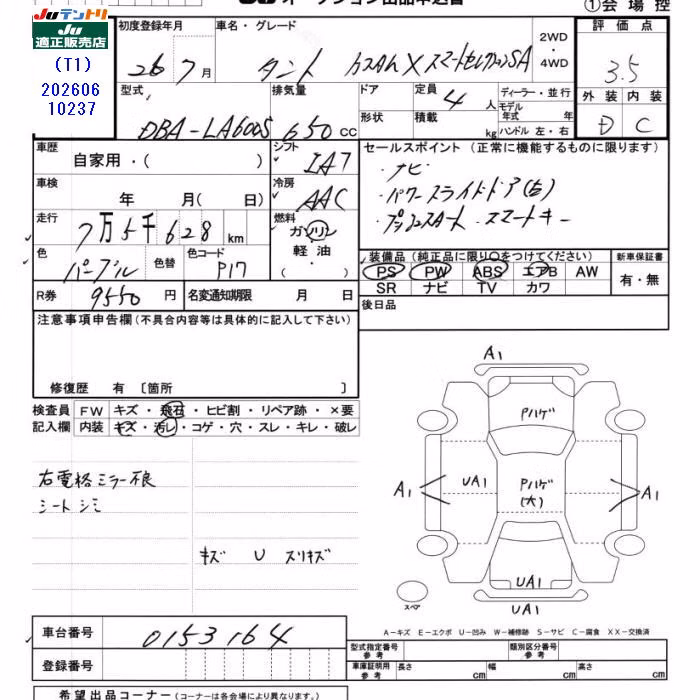 Juテントリ
Ju
適正販売店
(T1)
202606
10237
①会場控
初度登録年月
26 7月
車名・グレード
タント カスタムXスマートセレクションSA
2WD
・
4WD
評価点
3.5
外装 内装
D C
型式
DBA-LA600S
排気量
650cc
ドア
形状
定員 4人
積載 kg
ディーラー・並行
モデル年式 年
ハンドル 左・右
車歴
自家用・( )
シフト
IAT
車検
年 月(日)
冷房
AAC
走行
7万5千628km
燃料
ガソリン
・
軽油
・
( )
色
パープル
色替
色コード
P17
R券 9550円
名変通知期限 月 日
セールスポイント(正常に機能するものに限ります)
・ナビ
・パワースライドドア(右)
・プッシュスタート スマートキー
装備品(純正品に限り○をつけてください)
PS PW ABS エアB AW
SR ナビ TV カワ
新車保証書
有・無
後日品
注意事項申告欄(不具合内容等は具体的に記入して下さい)
修復歴 有〔箇所 〕
検査員記入欄
FW キズ・飛石・ヒビ割・リペア跡・×要
内装 キズ・汚レ・コゲ・穴・スレ・キレ・破レ
右電格ミラー不良
シートシミ
キズ U スリキズ
A1
Pハゲ
A1
UA1
Pハゲ
(大)
A1
UA1
UA1
スペア
A-キズ E-エクボ U-凹み W-補修跡 S-サビ C-腐食 XX-交換済
車台番号 0153164
登録番号
型式指定番号
参考
類別区分番号
参考
車庫証明用
参考
長さ cm 幅 cm 高さ cm
希望出品コーナー(コーナーは各会場により異なります。)